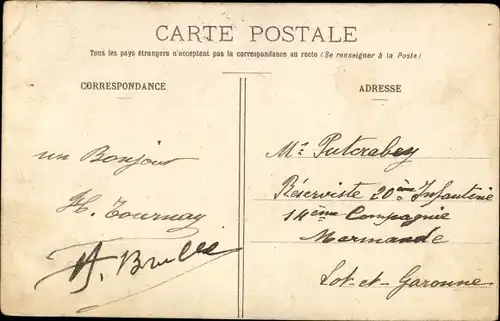 CARTE POSTALE
Tous les pays étrangers n'acceptent pas la correspondance au recto (Se renseigner à la Poste)
CORRESPONDANCE
un Bonjour
H. Tournay
ADRESSE
Mr Putcrabey
Réserviste 20ème Infanterie
14ème Compagnie
Marmande
Lot-et-Garonne